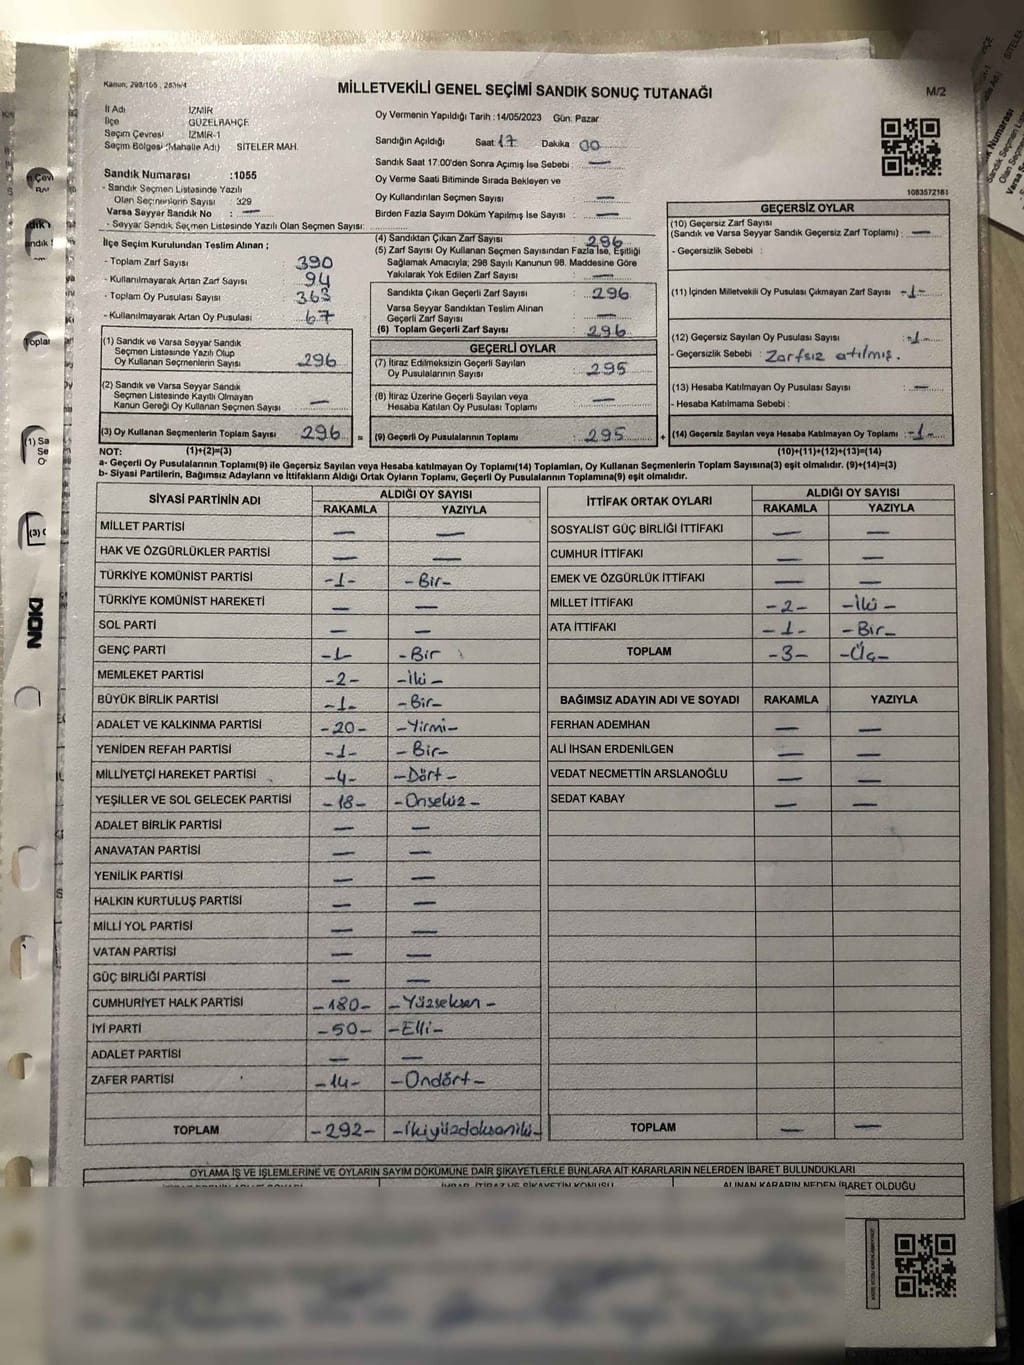 Kanun; 298/105 , 2839/4
MİLLETVEKİLİ GENEL SEÇİMİ SANDIK SONUÇ TUTANAĞI
M/2
İl Adı İZMİR
İlçe GÜZELBAHÇE
Seçim Çevresi : İZMİR-1
Seçim Bölgesi (Mahalle Adı) : SİTELER MAH.
Oy Vermenin Yapıldığı Tarih : 14/05/2023 Gün: Pazar
Sandığın Açıldığı Saat : 17 Dakika : 00
Sandık Saat 17:00'den Sonra Açılmış İse Sebebi : —
Sandık Numarası :1055
- Sandık Seçmen Listesinde Yazılı
Olan Seçmenlerin Sayısı : 329
Varsa Seyyar Sandık No : —
- Seyyar Sandık Seçmen Listesinde Yazılı Olan Seçmen Sayısı:
Oy Verme Saati Bitiminde Sırada Bekleyen ve
Oy Kullandırılan Seçmen Sayısı : —
Birden Fazla Sayım Döküm Yapılmış İse Sayısı : —
1083572161
İlçe Seçim Kurulundan Teslim Alınan ;
- Toplam Zarf Sayısı : 390
- Kullanılmayarak Artan Zarf Sayısı : 94
- Toplam Oy Pusulası Sayısı : 363
- Kullanılmayarak Artan Oy Pusulası : 67
(1) Sandık ve Varsa Seyyar Sandık
Seçmen Listesinde Yazılı Olup
Oy Kullanan Seçmenlerin Sayısı : 296
(2) Sandık ve Varsa Seyyar Sandık
Seçmen Listesinde Kayıtlı Olmayan
Kanun Gereği Oy Kullanan Seçmen Sayısı : —
(3) Oy Kullanan Seçmenlerin Toplam Sayısı : 296
(4) Sandıktan Çıkan Zarf Sayısı : 296
(5) Zarf Sayısı Oy Kullanan Seçmen Sayısından Fazla İse, Eşitliği
Sağlamak Amacıyla; 298 Sayılı Kanunun 98. Maddesine Göre
Yakılarak Yok Edilen Zarf Sayısı : —
Sandıkta Çıkan Geçerli Zarf Sayısı : 296
Varsa Seyyar Sandıktan Teslim Alınan
Geçerli Zarf Sayısı : —
(6) Toplam Geçerli Zarf Sayısı : 296
GEÇERLİ OYLAR
(7) İtiraz Edilmeksizin Geçerli Sayılan
Oy Pusulalarının Sayısı : 295
(8) İtiraz Üzerine Geçerli Sayılan veya
Hesaba Katılan Oy Pusulası Toplamı : —
= (9) Geçerli Oy Pusulalarının Toplamı : 295
GEÇERSİZ OYLAR
(10) Geçersiz Zarf Sayısı
(Sandık ve Varsa Seyyar Sandık Geçersiz Zarf Toplamı) : —
- Geçersizlik Sebebi :
(11) İçinden Milletvekili Oy Pusulası Çıkmayan Zarf Sayısı : -1-
(12) Geçersiz Sayılan Oy Pusulası Sayısı : -1-
- Geçersizlik Sebebi : Zarfsız atılmış.
(13) Hesaba Katılmayan Oy Pusulası Sayısı : —
- Hesaba Katılmama Sebebi :
+ (14) Geçersiz Sayılan veya Hesaba Katılmayan Oy Toplamı : -1-
NOT: (1)+(2)=(3) (10)+(11)+(12)+(13)=(14)
a- Geçerli Oy Pusulalarının Toplamı(9) ile Geçersiz Sayılan veya Hesaba katılmayan Oy Toplamı(14) Toplamları, Oy Kullanan Seçmenlerin Toplam Sayısına(3) eşit olmalıdır. (9)+(14)=(3)
b- Siyasi Partilerin, Bağımsız Adayların ve İttifakların Aldığı Ortak Oyların Toplamı, Geçerli Oy Pusulalarının Toplamına(9) eşit olmalıdır.
SİYASİ PARTİNİN ADI ALDIĞI OY SAYISI
RAKAMLA YAZIYLA
MİLLET PARTİSİ — —
HAK VE ÖZGÜRLÜKLER PARTİSİ — —
TÜRKİYE KOMÜNİST PARTİSİ -1- -Bir-
TÜRKİYE KOMÜNİST HAREKETİ — —
SOL PARTİ — —
GENÇ PARTİ -1- -Bir
MEMLEKET PARTİSİ -2- -İki-
BÜYÜK BİRLİK PARTİSİ -1- -Bir-
ADALET VE KALKINMA PARTİSİ -20- -Yirmi-
YENİDEN REFAH PARTİSİ -1- -Bir-
MİLLİYETÇİ HAREKET PARTİSİ -4- -Dört-
YEŞİLLER VE SOL GELECEK PARTİSİ -18- -Onsekiz-
ADALET BİRLİK PARTİSİ — —
ANAVATAN PARTİSİ — —
YENİLİK PARTİSİ — —
HALKIN KURTULUŞ PARTİSİ — —
MİLLİ YOL PARTİSİ — —
VATAN PARTİSİ — —
GÜÇ BİRLİĞİ PARTİSİ — —
CUMHURİYET HALK PARTİSİ -180- -Yüzseksen-
İYİ PARTİ -50- -Elli-
ADALET PARTİSİ — —
ZAFER PARTİSİ -14- -Ondört-
TOPLAM -292- -İkiyüzdoksaniki-
İTTİFAK ORTAK OYLARI ALDIĞI OY SAYISI
RAKAMLA YAZIYLA
SOSYALİST GÜÇ BİRLİĞİ İTTİFAKI — —
CUMHUR İTTİFAKI — —
EMEK VE ÖZGÜRLÜK İTTİFAKI — —
MİLLET İTTİFAKI -2- -İki-
ATA İTTİFAKI -1- -Bir-
TOPLAM -3- -Üç-
BAĞIMSIZ ADAYIN ADI VE SOYADI RAKAMLA YAZIYLA
FERHAN ADEMHAN — —
ALİ İHSAN ERDENİLGEN — —
VEDAT NECMETTİN ARSLANOĞLU — —
SEDAT KABAY — —
TOPLAM — —
OYLAMA İŞ VE İŞLEMLERİNE VE OYLARIN SAYIM DÖKÜMÜNE DAİR ŞİKAYETLERLE BUNLARA AİT KARARLARIN NELERDEN İBARET BULUNDUKLARI
İHBAR, İTİRAZ VE ŞİKAYETİN KONUSU
ALINAN KARARIN NEDEN İBARET OLDUĞU